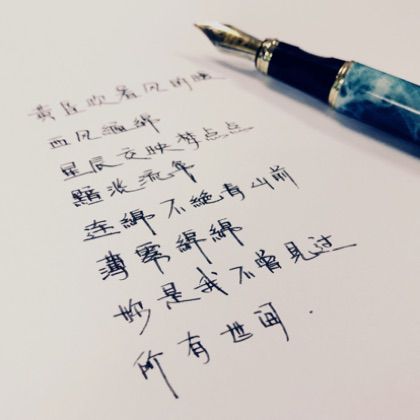 黄昏吹着风的映
西风缠绵
星辰交映梦点点
黯淡流年
连绵不絕青山前
薄雾綿綿
妙是我不曾見过
所有世间.